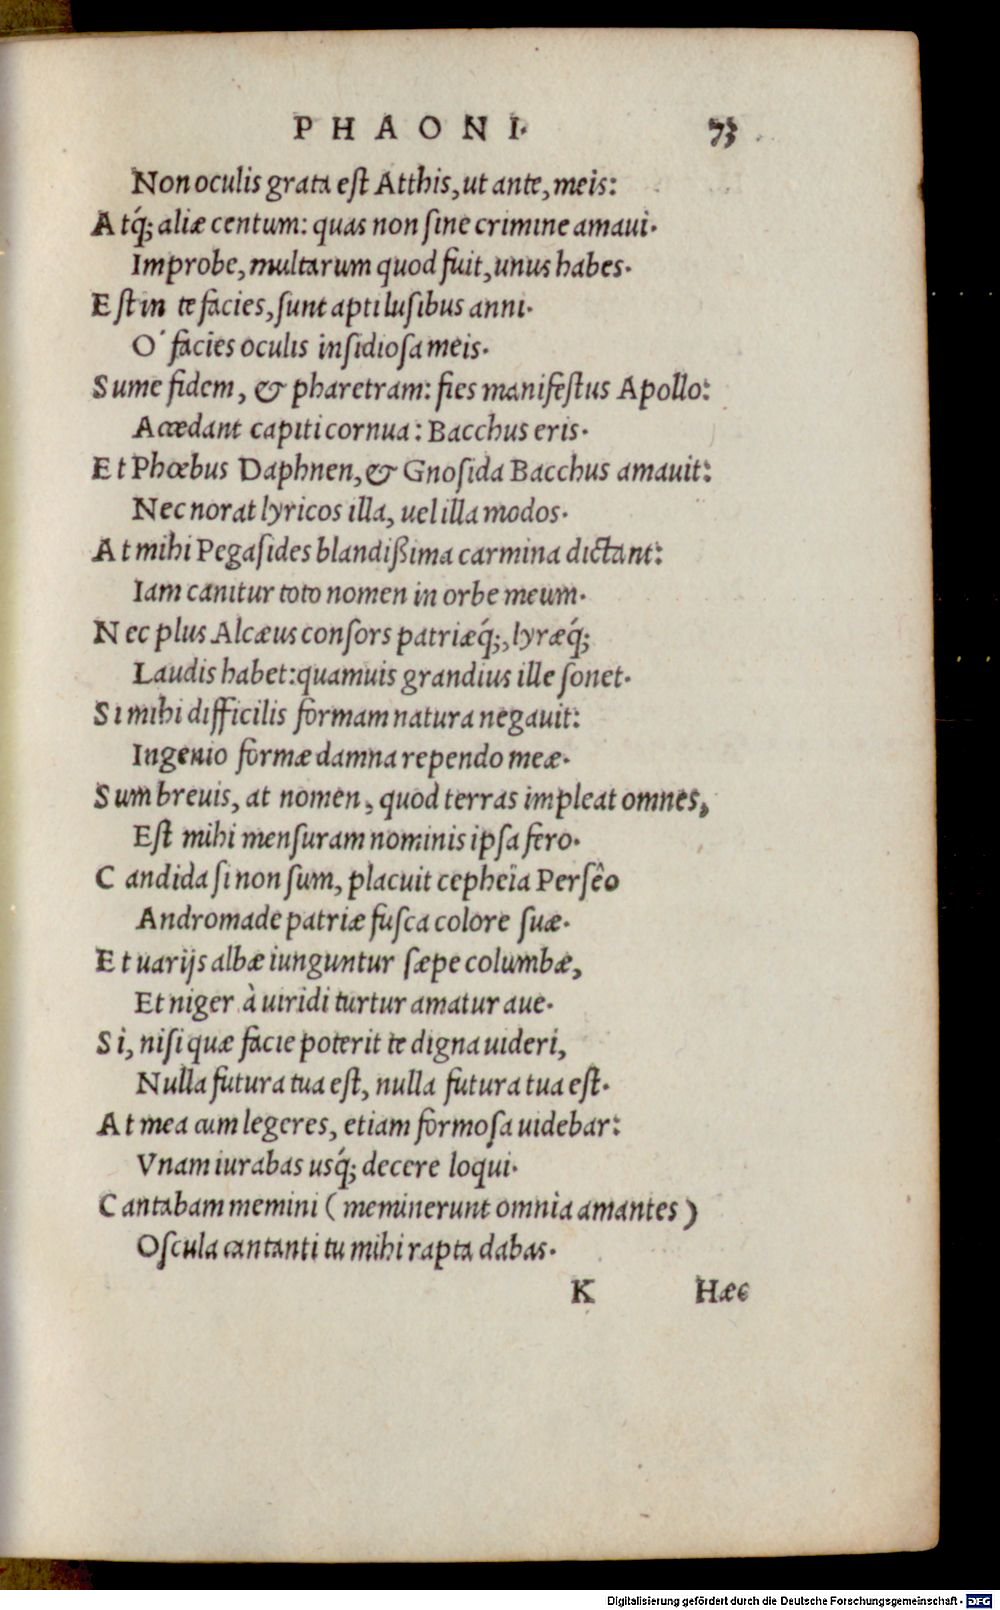 PHAONI. 73
Non oculis grata eſt Atthis, ut ante, meis:
Atq́; aliæ centum: quas non ſine crimine amaui.
Improbe, multarum quod fuit, unus habes.
Eſt in te facies, ſunt apti luſibus anni.
O' facies oculis inſidioſa meis.
Sume fidem, & pharetram: fies manifeſtus Apollo:
Accedant capiti cornua: Bacchus eris.
Et Phœbus Daphnen, & Gnoſida Bacchus amauit:
Nec norat lyricos illa, uel illa modos.
At mihi Pegaſides blandißima carmina dictant:
Iam canitur toto nomen in orbe meum.
Nec plus Alcæus conſors patriæq́;, lyræq́;
Laudis habet: quamuis grandius ille ſonet.
Si mihi difficilis formam natura negauit:
Ingenio formæ damna rependo meæ.
Sum breuis, at nomen, quod terras impleat omnes,
Eſt mihi menſuram nominis ipſa fero.
Candida ſi non ſum, placuit cepheïa Perſêo
Andromade patriæ fuſca colore ſuæ.
Et uarijs albæ iunguntur ſæpe columbæ,
Et niger à uiridi turtur amatur aue.
Si, niſi quæ facie poterit te digna uideri,
Nulla futura tua eſt, nulla futura tua eſt.
At mea cum legeres, etiam formoſa uidebar:
Vnam iurabas uſq́; decere loqui.
Cantabam memini (meminerunt omnia amantes)
Oſcula cantanti tu mihi rapta dabas.
K Hæc
Digitalisierung gefördert durch die Deutsche Forschungsgemeinschaft - DFG